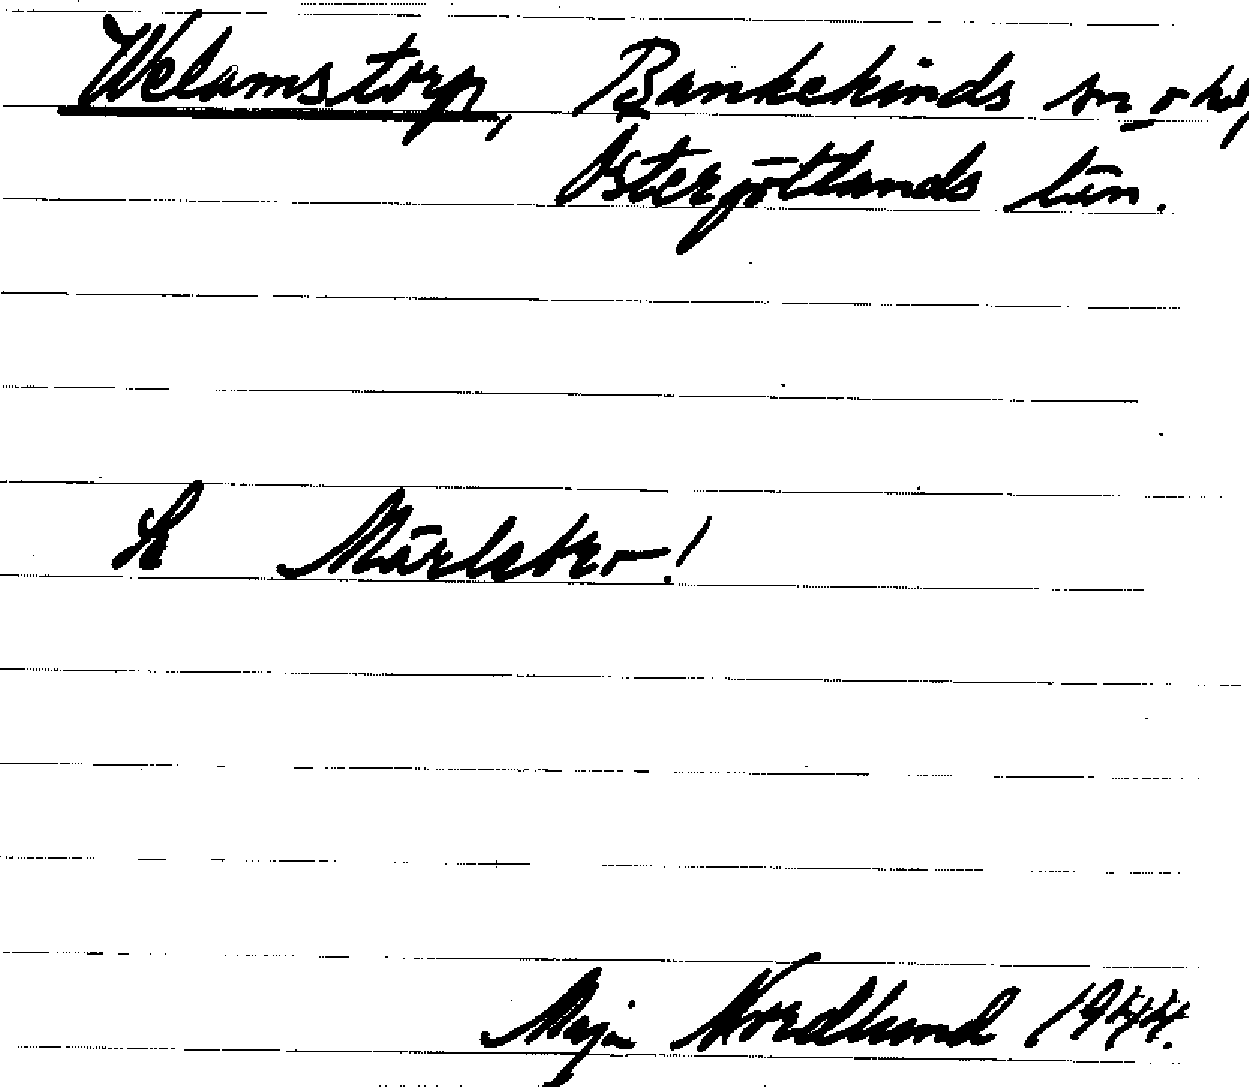 Welamstorp, Bankekinds sn o hd,
Östergötlands län.
Se Mårlebro!
Maja Nordlund 1944.